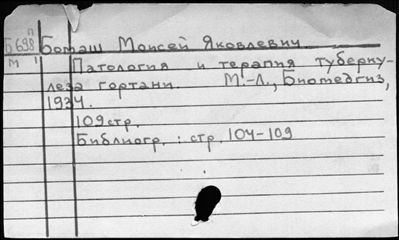 П
Б 698 Боташ Моисей Яковлевич
М
Патология и терапия туберку-
леза гортани. М.-Л., Биомедгиз,
1934.
109 стр.
Библиогр.: стр. 104-109